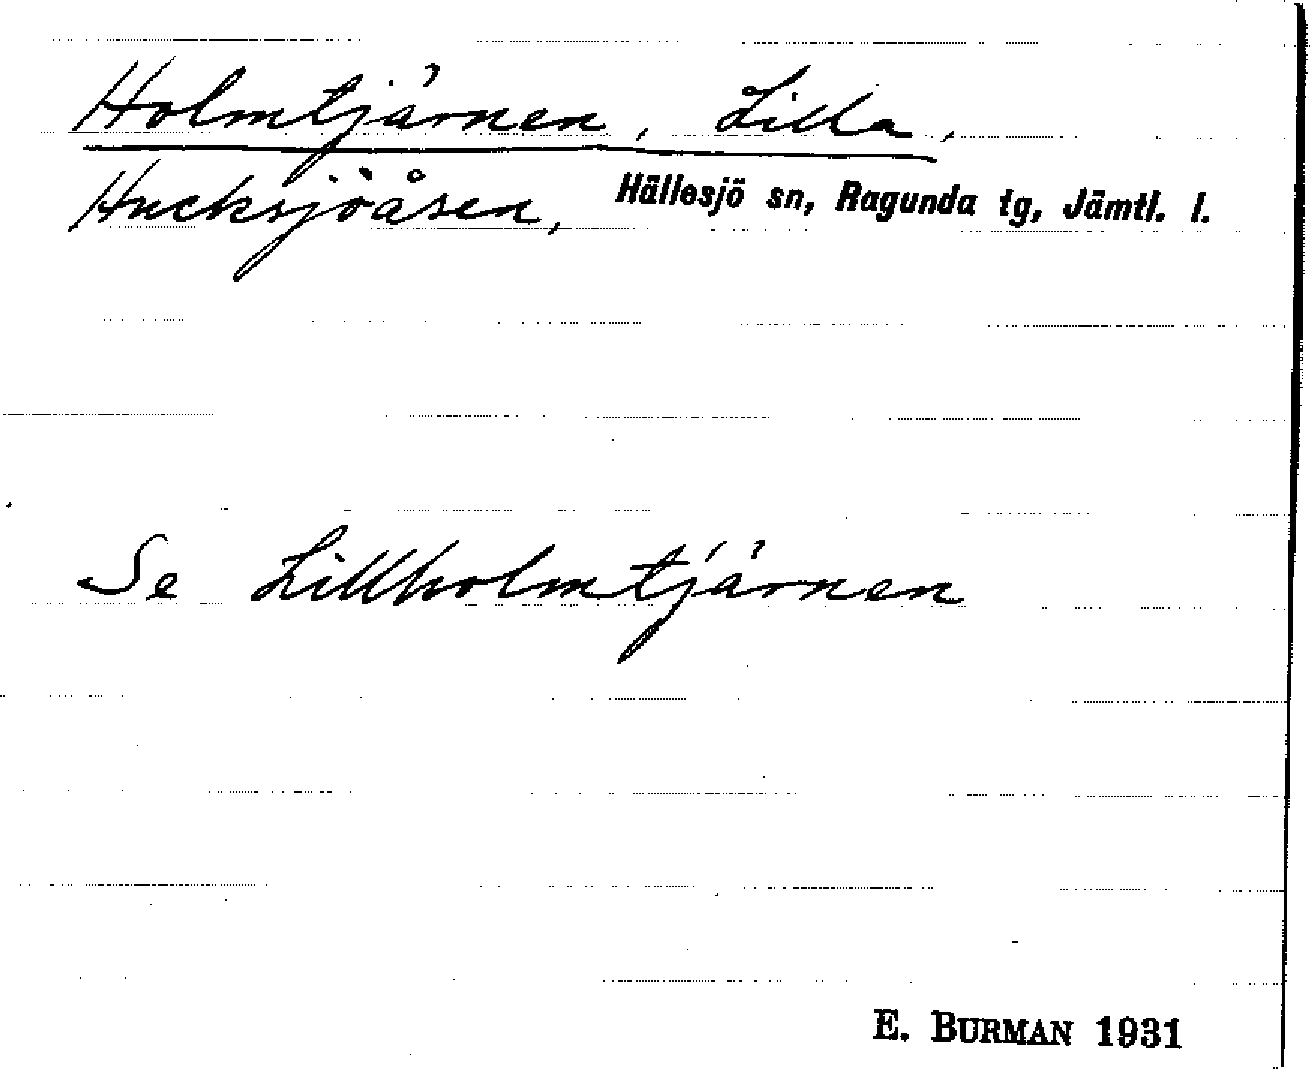 Holmtjärnen, Lilla,
Hucksjöåsen, Hällesjö sn, Ragunda tg, Jämtl. l.
Se Lillholmtjärnen
E. BURMAN 1931